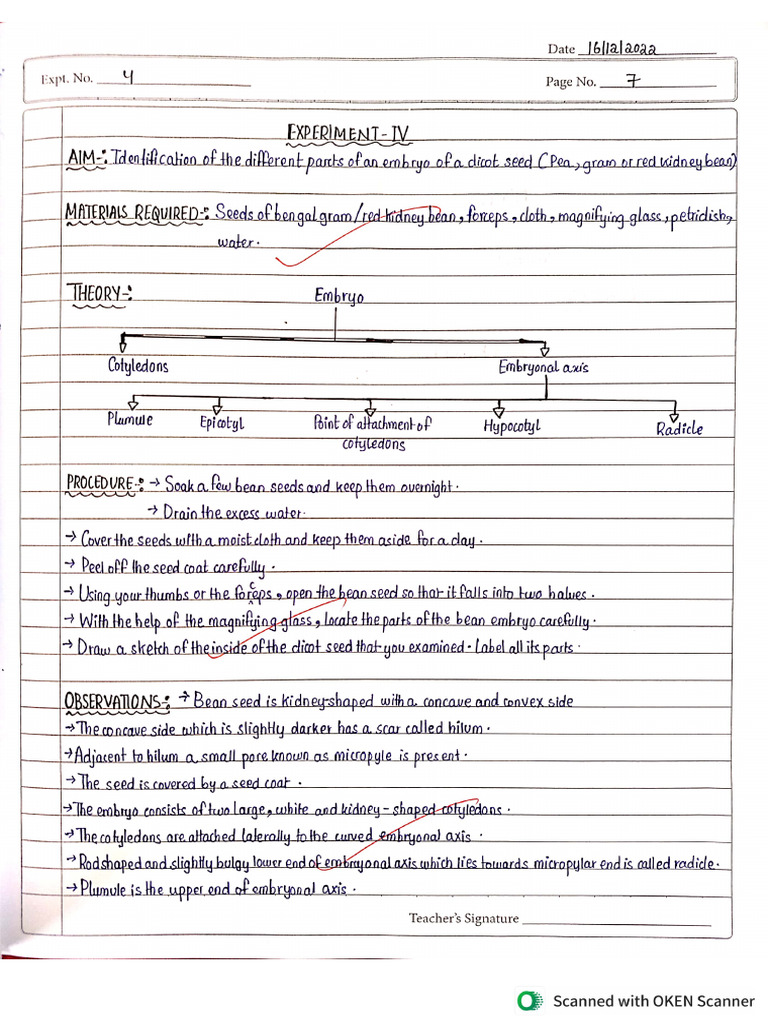 Date 16/12/2022
Expt. No. 4
Page No. 7
EXPERIMENT-IV
AIM-: Identification of the different parts of an embryo of a dicot seed (Pea, gram or red kidney bean)
MATERIALS REQUIRED-: Seeds of bengal gram/red kidney bean, forceps, cloth, magnifying glass, petridish,
water.
THEORY-: Embryo
Cotyledons Embryonal axis
Plumule Epicotyl Point of attachment of Hypocotyl Radicle
cotyledons
PROCEDURE-: → Soak a few bean seeds and keep them overnight.
→ Drain the excess water.
→ Cover the seeds with a moist cloth and keep them aside for a day.
→ Peel off the seed coat carefully.
→ Using your thumbs or the forceps, open the bean seed so that it falls into two halves.
→ With the help of the magnifying glass, locate the parts of the bean embryo carefully.
→ Draw a sketch of the inside of the dicot seed that you examined. Label all its parts.
OBSERVATIONS-: → Bean seed is kidney-shaped with a concave and convex side
→ The concave side which is slightly darker has a scar called hilum.
→ Adjacent to hilum a small pore known as micropyle is present.
→ The seed is covered by a seed coat.
→ The embryo consists of two large, white and kidney-shaped cotyledons.
→ The cotyledons are attached laterally to the curved embryonal axis.
→ Rod shaped and slightly bulgy lower end of embryonal axis which lies towards micropylar end is called radicle.
→ Plumule is the upper end of embryonal axis.
Teacher's Signature
Scanned with OKEN Scanner